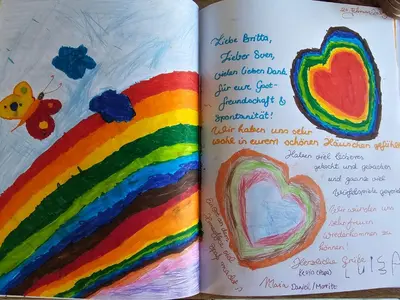 Liebe Britta,
Lieber Sven,
vielen lieben Dank
für eure Gast-
freundschaft &
Spontanität!
Wir haben uns sehr
wohl in eurem schönen Häuschen gefühlt
Haben viel Leckeres
gekocht und gebacken
und ganze viel
Würfelspiele gespielt
Wir würden uns
sehr freuen
wiederkommen zu
können!
Herzliche Grüße
LUISA
Maia Daniel / Moritz